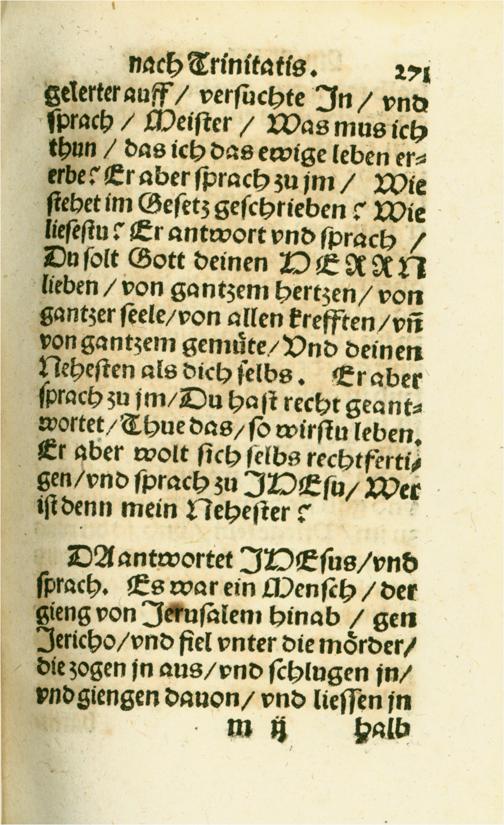 nach Trinitatis. 271
gelerter auff / versuchte In / vnd
sprach / Meister / Was mus ich
thun / das ich das ewige leben er⸗
erbe? Er aber sprach zu jm / Wie
stehet im Gesetz geschrieben? Wie
liesestu? Er antwort vnd sprach /
Du solt Gott deinen HERRN
lieben / von gantzem hertzen / von
gantzer seele / von allen krefften / vñ
von gantzem gemüte / Vnd deinen
Nehesten als dich selbs. Er aber
sprach zu jm / Du hast recht geant⸗
wortet / Thue das / so wirstu leben.
Er aber wolt sich selbs rechtferti⸗
gen / vnd sprach zu JHEsu / Wer
ist denn mein Nehester?
DA antwortet JHEsus / vnd
sprach. Es war ein Mensch / der
gieng von Jerusalem hinab / gen
Jericho / vnd fiel vnter die mörder /
die zogen jn aus / vnd schlugen jn /
vnd giengen dauon / vnd liessen jn
m ij halb